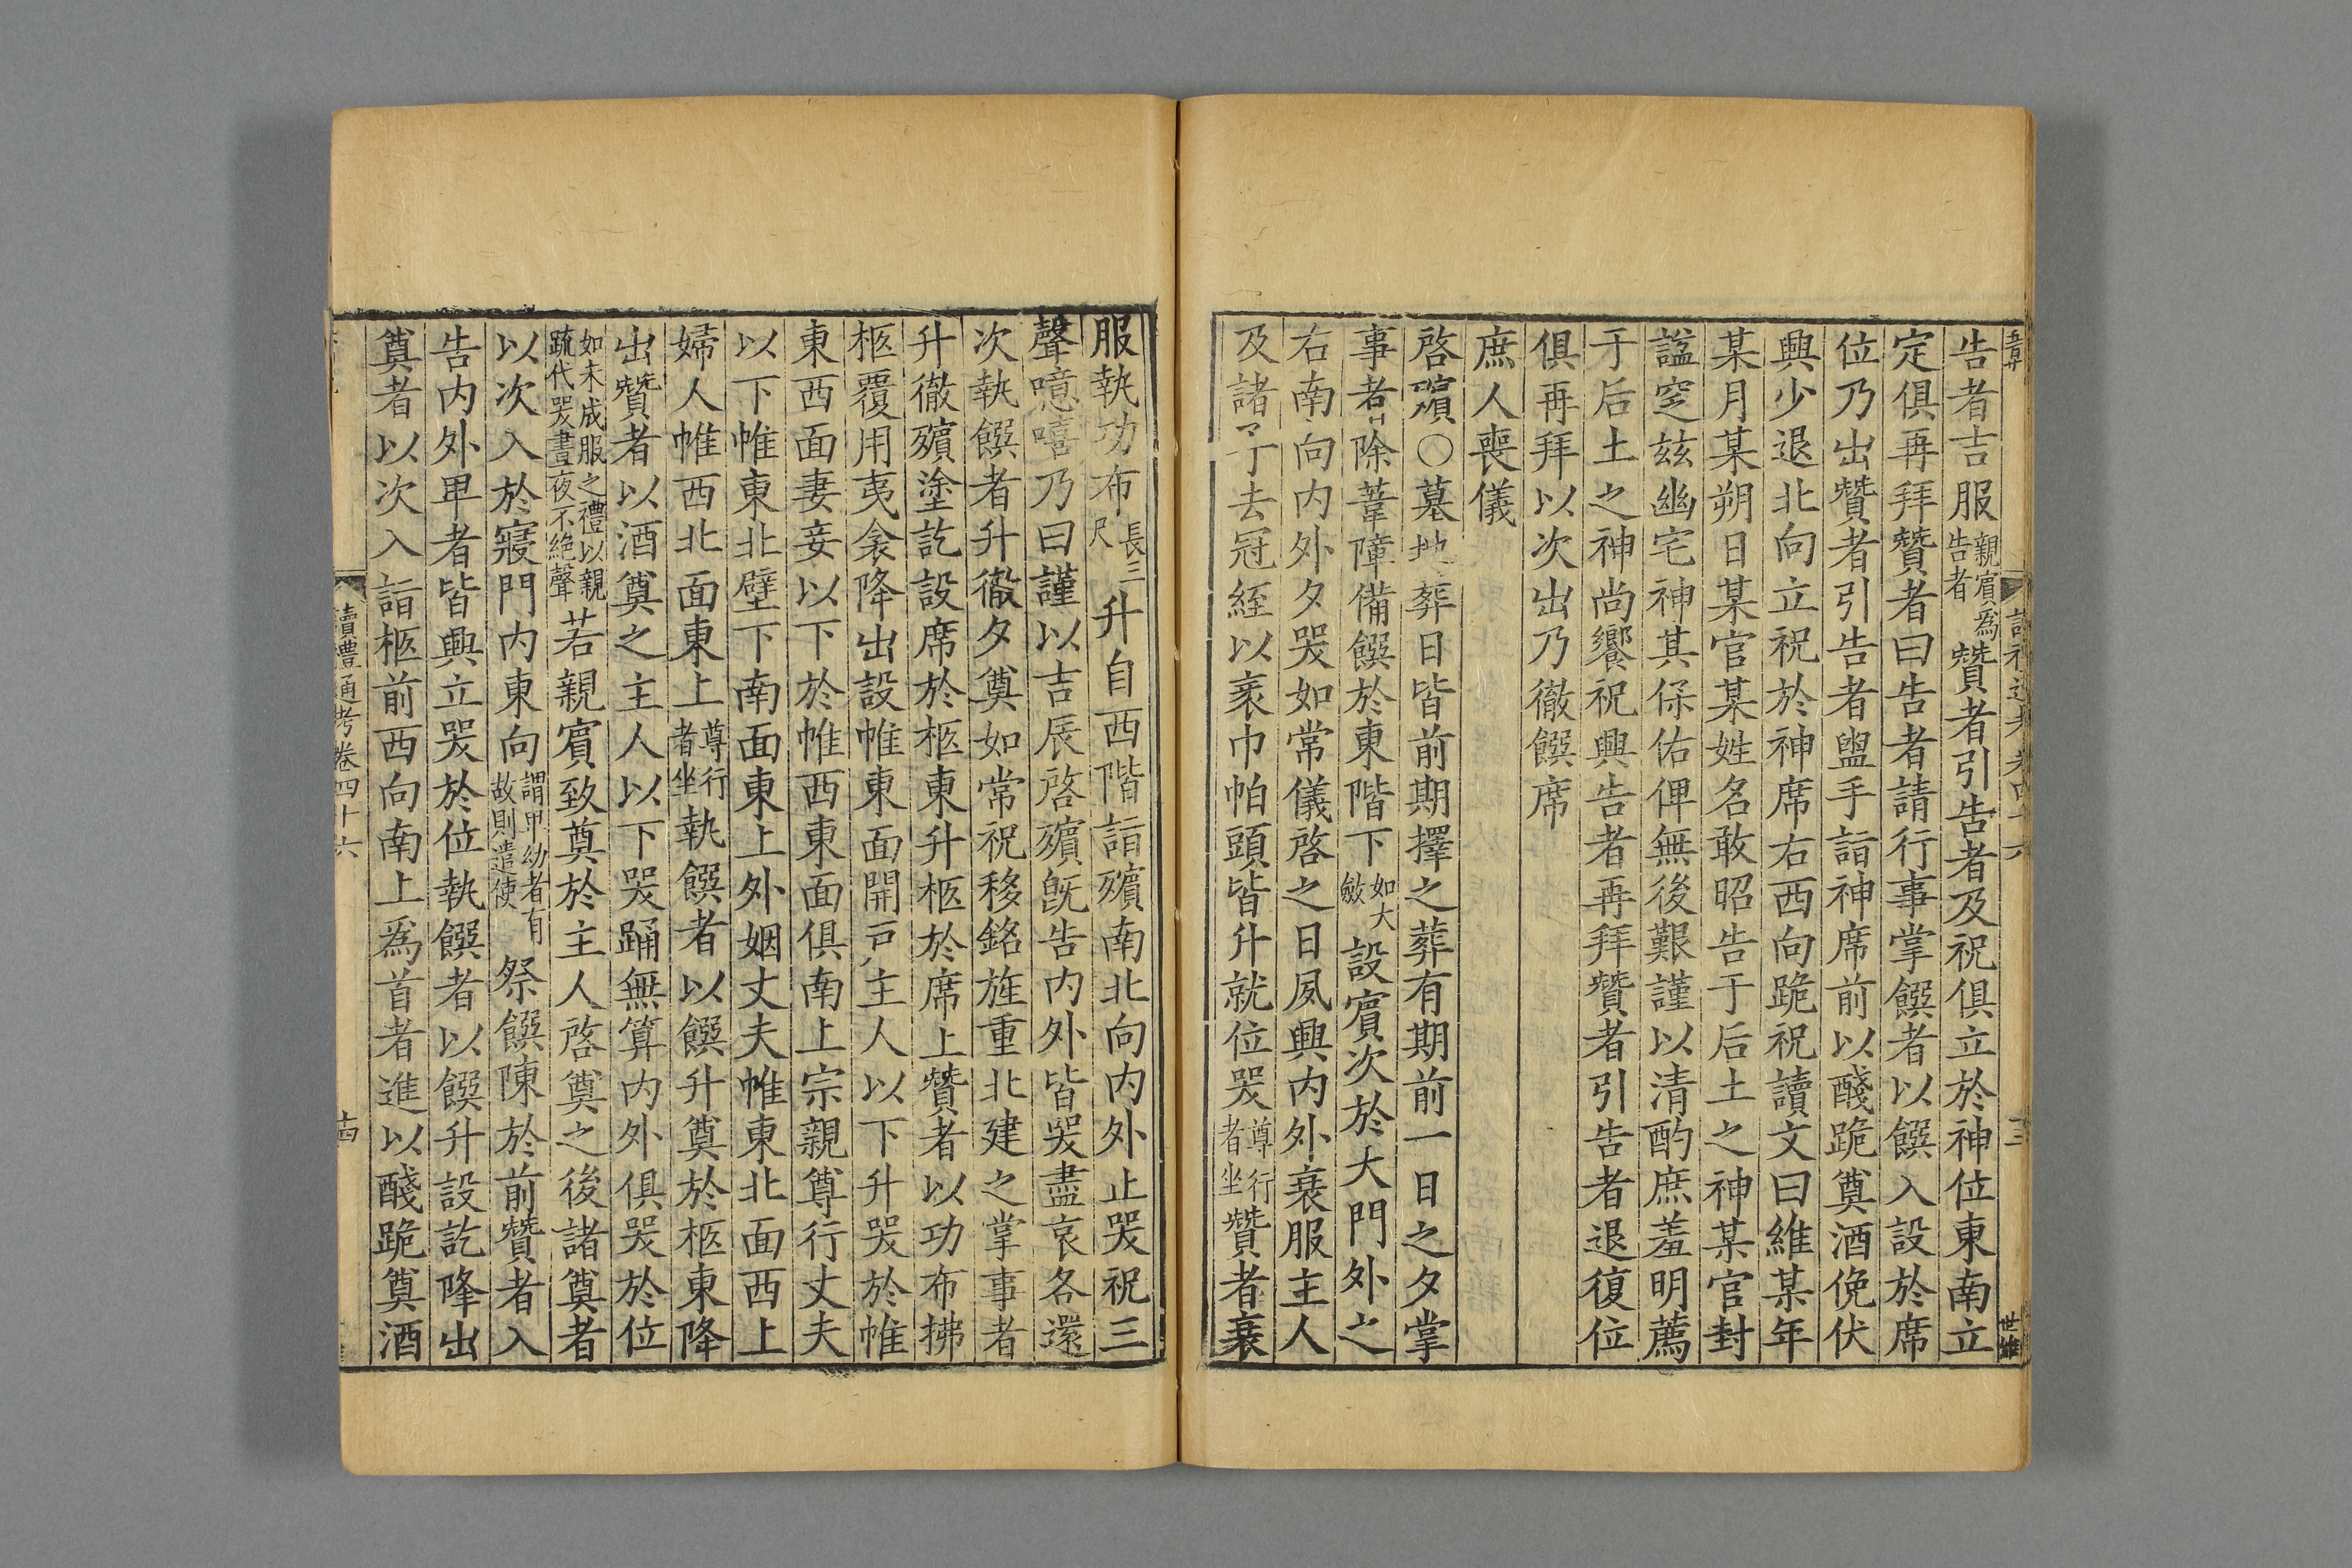 告者吉服親賓爲告者贊者引告者及祝俱立於神位東南立
定俱再拜贊者曰告者請行事掌饌者以饌入設於席
位乃出贊者引告者盥手詣神席前以醆跪奠酒俛伏
興少退北向立祝於神席右西向跪祝讀文曰維某年
某月某朔日某官某姓名敢昭告于后土之神某官封
諡窆玆幽宅神其保佑俾無後艱謹以清酌庶羞明薦
于后土之神尚饗祝興告者再拜贊者引告者退復位
俱再拜以次出乃徹饌席
庶人喪儀
啓殯〇墓地葬日皆前期擇之葬有期前一日之夕掌
事者除葦障備饌於東階下如大斂設賓次於大門外之
右南向內外夕哭如常儀啓之日夙興內外衰服主人
及諸子去冠絰以袤巾帕頭皆升就位哭尊行者坐贊者衰
服執功布長三尺升自西階詣殯南北向內外止哭祝三
聲噫嘻乃曰謹以吉辰啓殯旣告內外皆哭盡哀各還
次執饌者升徹夕奠如常祝移銘旌重北建之掌事者
升徹殯塗訖設席於柩東升柩於席上贊者以功布拂
柩覆用夷衾降出設帷東面開戸主人以下升哭於帷
東西面妻妾以下於帷西東面俱南上宗親尊行丈夫
以下帷東北壁下南面東上外姻丈夫帷東北面西上
婦人帷西北面東上尊行者坐執饌者以饌升奠於柩東降
出贊者以酒奠之主人以下哭踊無算內外俱哭於位
如未成服之禮以親疏代哭晝夜不絕聲若親賓致奠於主人啓奠之後諸奠者
以次入於寢門內東向謂甲幼者有故則遣使祭饌陳於前贊者入
告內外甲者皆興立哭於位執饌者以饌升設訖降出
奠者以次入詣柩前西向南上爲首者進以醆跪奠酒
讀禮通考卷四十六
十四